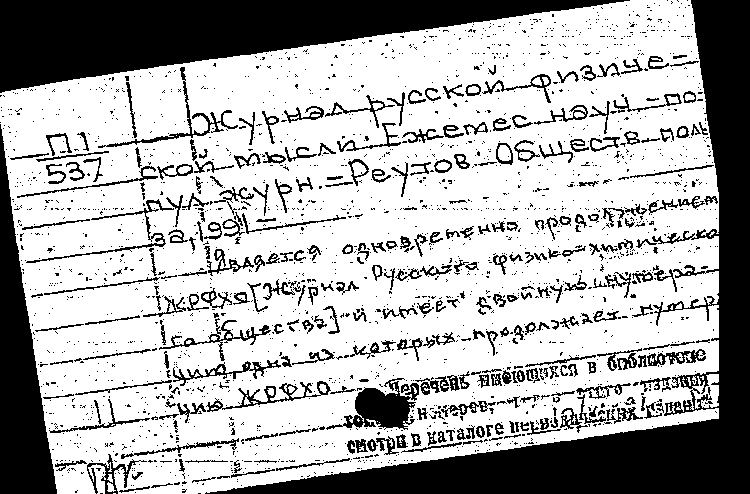 П1
537
Журнал русской физиче-
ской мысли. Ежемес науч -по-
пул журн. - Реутов: Обществ. поль
за, 1991 -
Является одновременно продолжением
ЖРФХО [Журнал Русского физико-химическо
го общества] и имеет двойную нумера-
цию, одна из которых продолжает нумер
цию ЖРФХО. -
Перечень имеющихся в библиотеке
номеров, этого издания
смотри в каталоге периодических изданий